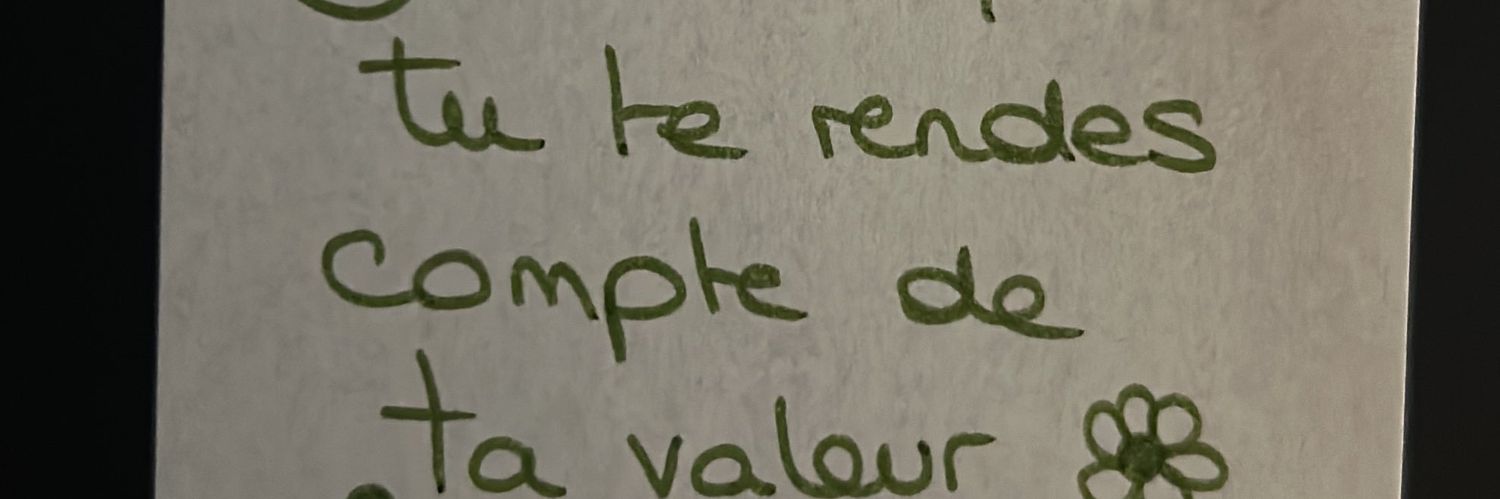 tu te rendes
compte de
ta valeur